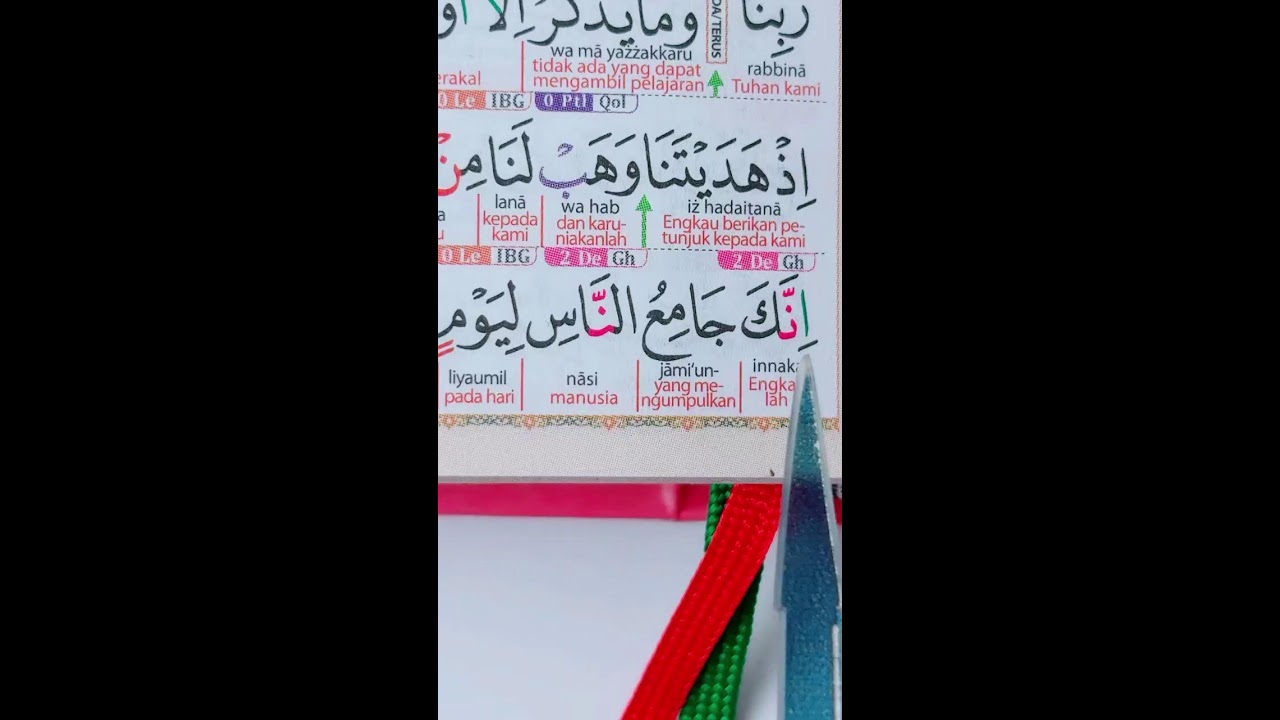 رَبَّنَا وَمَا يَذَّكَّرُ اِلَّآ
DA/TERUS
rabbinā wa mā yażżakkaru
Tuhan kami tidak ada yang dapat mengambil pelajaran erakal
Qol 0 Ptl IBG 0 Le
اِذْ هَدَيْتَنَا وَهَبْ لَنَا مِنْ
iż hadaitanā wa hab lanā
Engkau berikan pe-tunjuk kepada kami dan karu-niakanlah kepada kami
Gh 2 De Gh 2 De IBG 0 Le
اِنَّكَ جَامِعُ النَّاسِ لِيَوْمٍ
innaka jāmi‘un- nāsi liyaumil
Engka lah yang me-ngumpulkan manusia pada hari